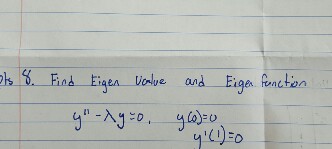 pts 8. Find Eigen value and Eigen function
y'' - λy = 0, y(0) = 0
y'(1) = 0